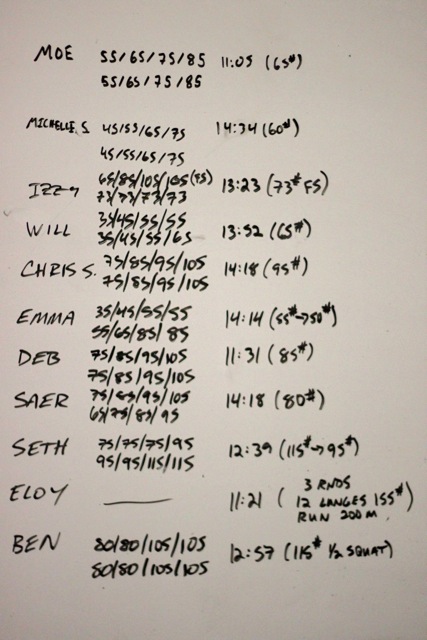 MOE 55/65/75/85 11:05 (65#)
55/65/75/85
MICHELLE S. 45/55/65/75 14:34 (60#)
45/55/65/75
65/85/105/105 (FS)
IZZY 73/73/73/73 13:23 (73# FS)
35/45/55/55
WILL 35/45/55/65 13:52 (65#)
CHRIS S. 75/85/95/105 14:18 (95#)
75/85/95/105
EMMA 35/45/55/55 14:14 (55#→50#)
55/65/85/85
DEB 75/85/95/105 11:31 (85#)
75/85/95/105
SAER 75/85/95/105 14:18 (80#)
65/75/85/95
SETH 75/75/75/95 12:39 (115#→95#)
95/95/115/115
3 RNDS
ELOY — 11:21 ( 12 LUNGES 155# )
RUN 200 M
BEN 80/80/105/105 12:57 (115# 1/2 SQUAT)
80/80/105/105